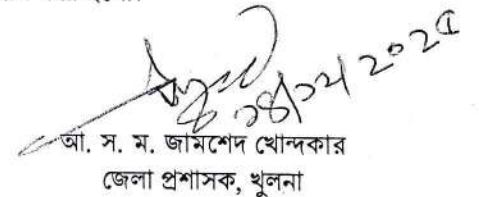 ১৪/১২/২০২৫
আ. স. ম. জামশেদ খোন্দকার
জেলা প্রশাসক, খুলনা